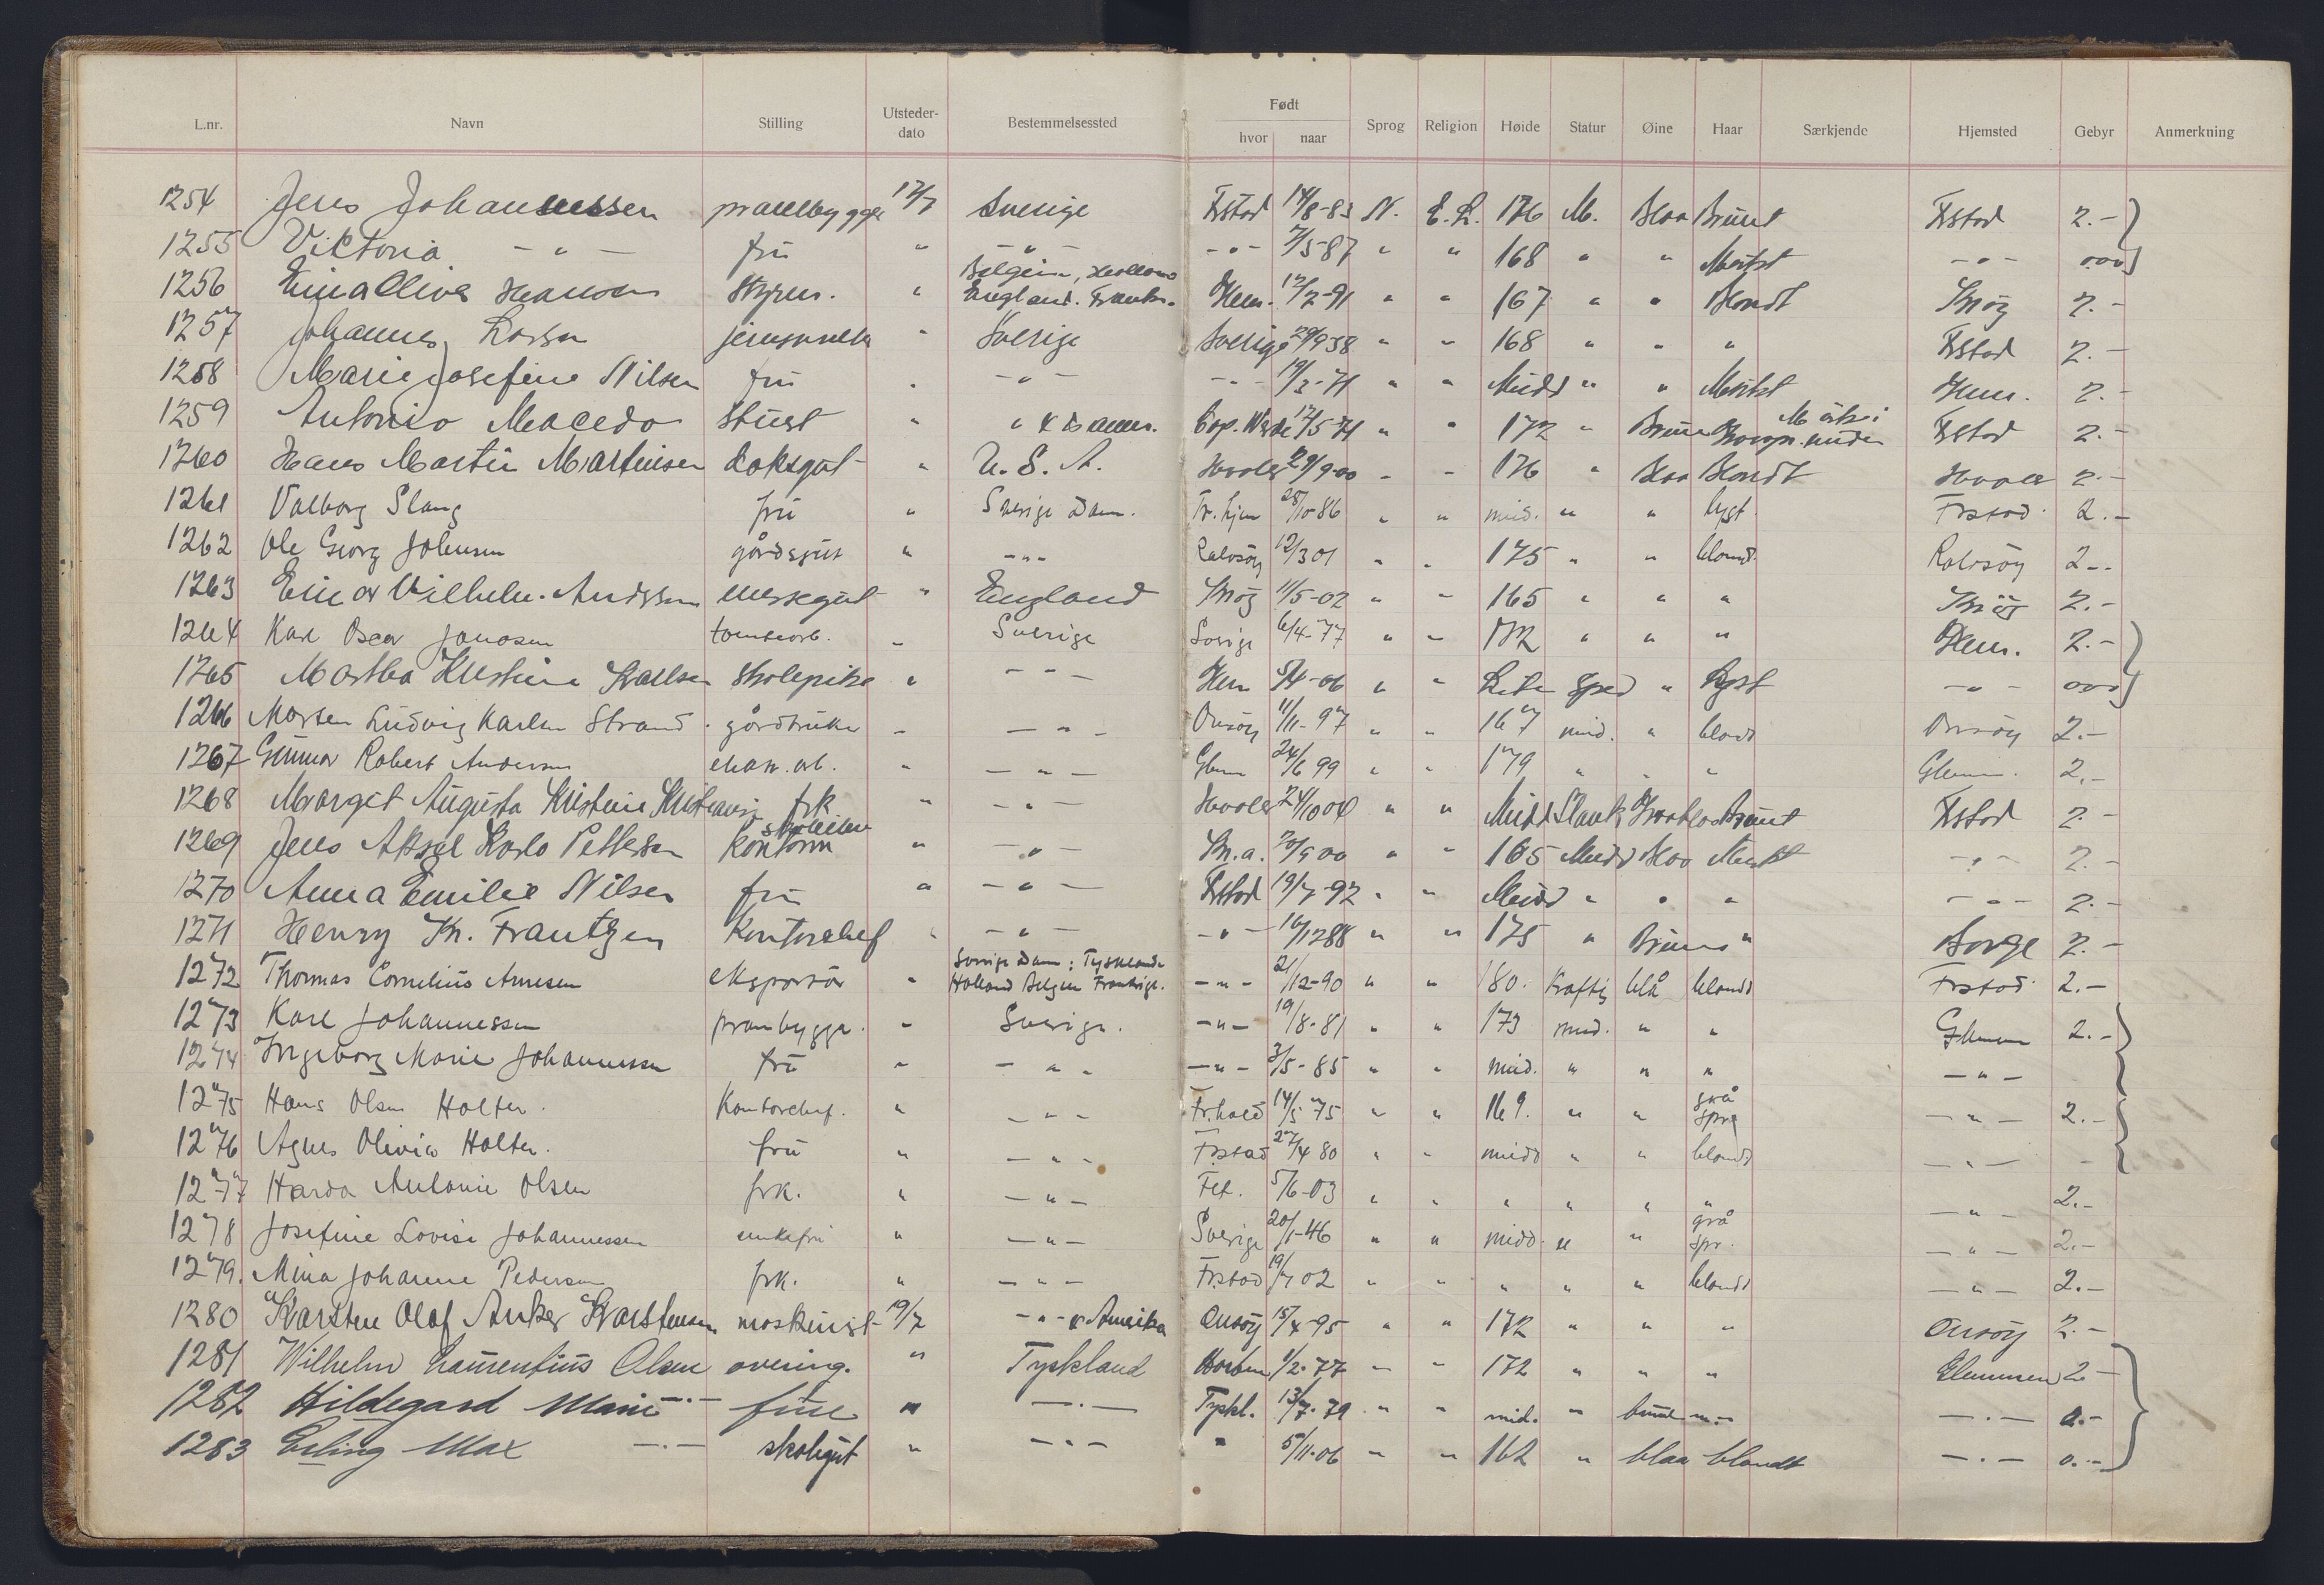 L.nr. Navn Stilling Utsteder-dato Bestemmelsessted Født hvor naar Sprog Religion Høide Statur Øine Haar Særkjende Hjemsted Gebyr Anmerkning
1254 Jens Johannessen 17/7 Sverige Frstad 14/8-83 N. E.L. 176 M. Blaa Brunt Frstad 2.-
1255 Viktoria -"- fru " -"- -"- 7/5-87 " " 168 " " Mørkt -"- 0.00
1256 Hansen Styrm. " Belgien, Holland England. Frankr. Glem. 12/2-91 " " 167 " " Blondt 2.-
1257 Johannes Larsen " Sverige Sverige 29/9 38 " " 168 " " " Frstad 2.-
1258 Marie Josefine Nilsen fru " -"- -"- 19/3-71 " " Midd " " Mørkt Glem. 2.-
1259 Antonio Macedo Stuert " " Cap. Verde 17/5-71 " " 172 " Brune Frstad 2.-
1260 Hans Martin Martinsen " U.S.A. Hvaler 29/9-00 " " 176 " Blaa Blondt Hvaler 2.-
1261 Valborg Slang fru " Sverige Dan. 28/10-86 " " mid. " " lyst Frstad. 2.-
1262 Ole Georg Johnsen gårdsgut " -"- Rolvsøy 12/3 01 " " 175 " " blond Rolvsøy 2.-
1263 Einar Vilhelm Andssen messegut " England 11/5-02 " " 165 " " " 2.-
1264 Karl Oscar Jonassen tomtearb. " Sverige Sverige 6/4-77 " " 172 " " " Glem. 2.-
1265 Martha Kristine Karlsen Skolepike " -"- Glem -06 " " Liten Sped " Lyst -"- 0.00
1266 Morten Ludvig Karlsen Strand. gårdbruker " -"- Onsøy 11/11-97 " " 167 mid. " blond Onsøy 2.-
1267 Gunnar Robert Andersen " -"- Glem 24/6 99 " " 179 " " " Glem. 2.-
1268 Margit Augusta Kristine frk " -"- Hvaler 24/10 04 " " Midd Slank Brunt Frstad 2.-
1269 Jens Aksel Karlo Pettersen " -"- 20/9 00 " " 165 Midd Blaa Mørkt -"- 2.-
1270 Anna Emilie Nilsen fru " -"- Frstad 19/7-92 " " Midd " " " -"- 2.-
1271 Henry Kr. Frantzen Kontorchef " -"- -"- 16/12 88 " " 175 " Brune " Borge 2.-
1272 Thomas Cornelius Arnesen eksportør " Sverige Dan: Tyskland Holland Belgien Frankrige. -"- 21/12-90 " " 180. Kraftig blå blondt Frstad 2.-
1273 Karl Johannessen prambygger. " Sverige. -"- 19/8-81 " " 173 mid. " " Glemmen 2.-
1274 Ingeborg Marie Johannessen fru " -"- -"- 3/5-85 " " mid. " " " -"-
1275 Hans Olsen Holter. Kontorchef. " -"- Frhald 14/5 75 " " 169. " " grå spr. -"- 2.-
1276 Agnes Olivia Holter. fru " -"- Frstad 27/4 80 " " midd " " blondt -"- -
1277 Antonie Olsen frk. " -"- 5/6-03 " " " " " " -"- 2.-
1278 Josefine Lovise Johannessen enkefru " -"- Sverige 20/1-46 " " midd. " " grå spr. -"- 2.-
1279. Mina Johanne Pedersen frk. " -"- Frstad 19/7 02 " " " " " blondt -"- 2.-
1280 Karsten Olaf Anker Karstensen maskinist 19/7 -"- & Amerika Onsøy 15/4-95 " " 172 " " " Onsøy 2.-
1281 Wilhelm Laurentius Olsen overing. " Tyskland Horten 1/2-77 " " 172 " " " Glemmen 2.-
1282 Hildegard Marie -"- frue " -"- Tyskl. 13/7-79 " " mid. " brune " -"- 0.-
1283 Erling Max -"- skolegut " -"- " 5/11-06 " " 162 " blaa blondt -"- 0.-